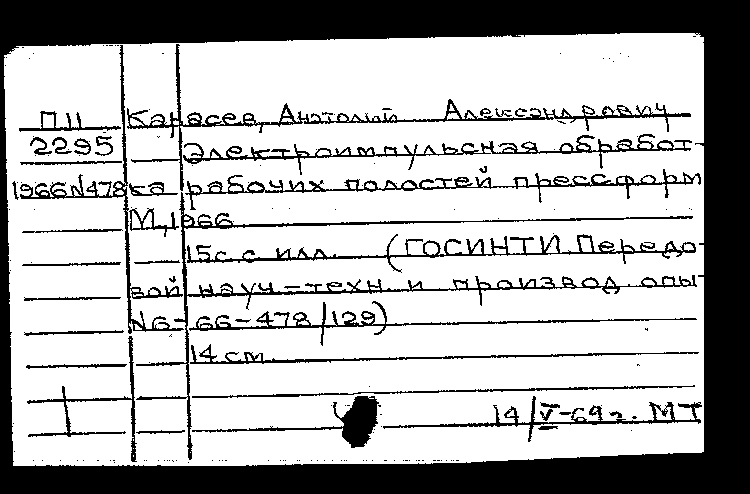 П11 Карасев, Анатолий Александрович
2295 Электроимпульсная обработ-
1966N478 ка рабочих полостей прессформ
М., 1966
15с. с илл. (ГОСИНТИ. Передо-
вой науч-техн. и производ. опыт
N6-66-478/129)
14 см.
14/V-69г. МТ